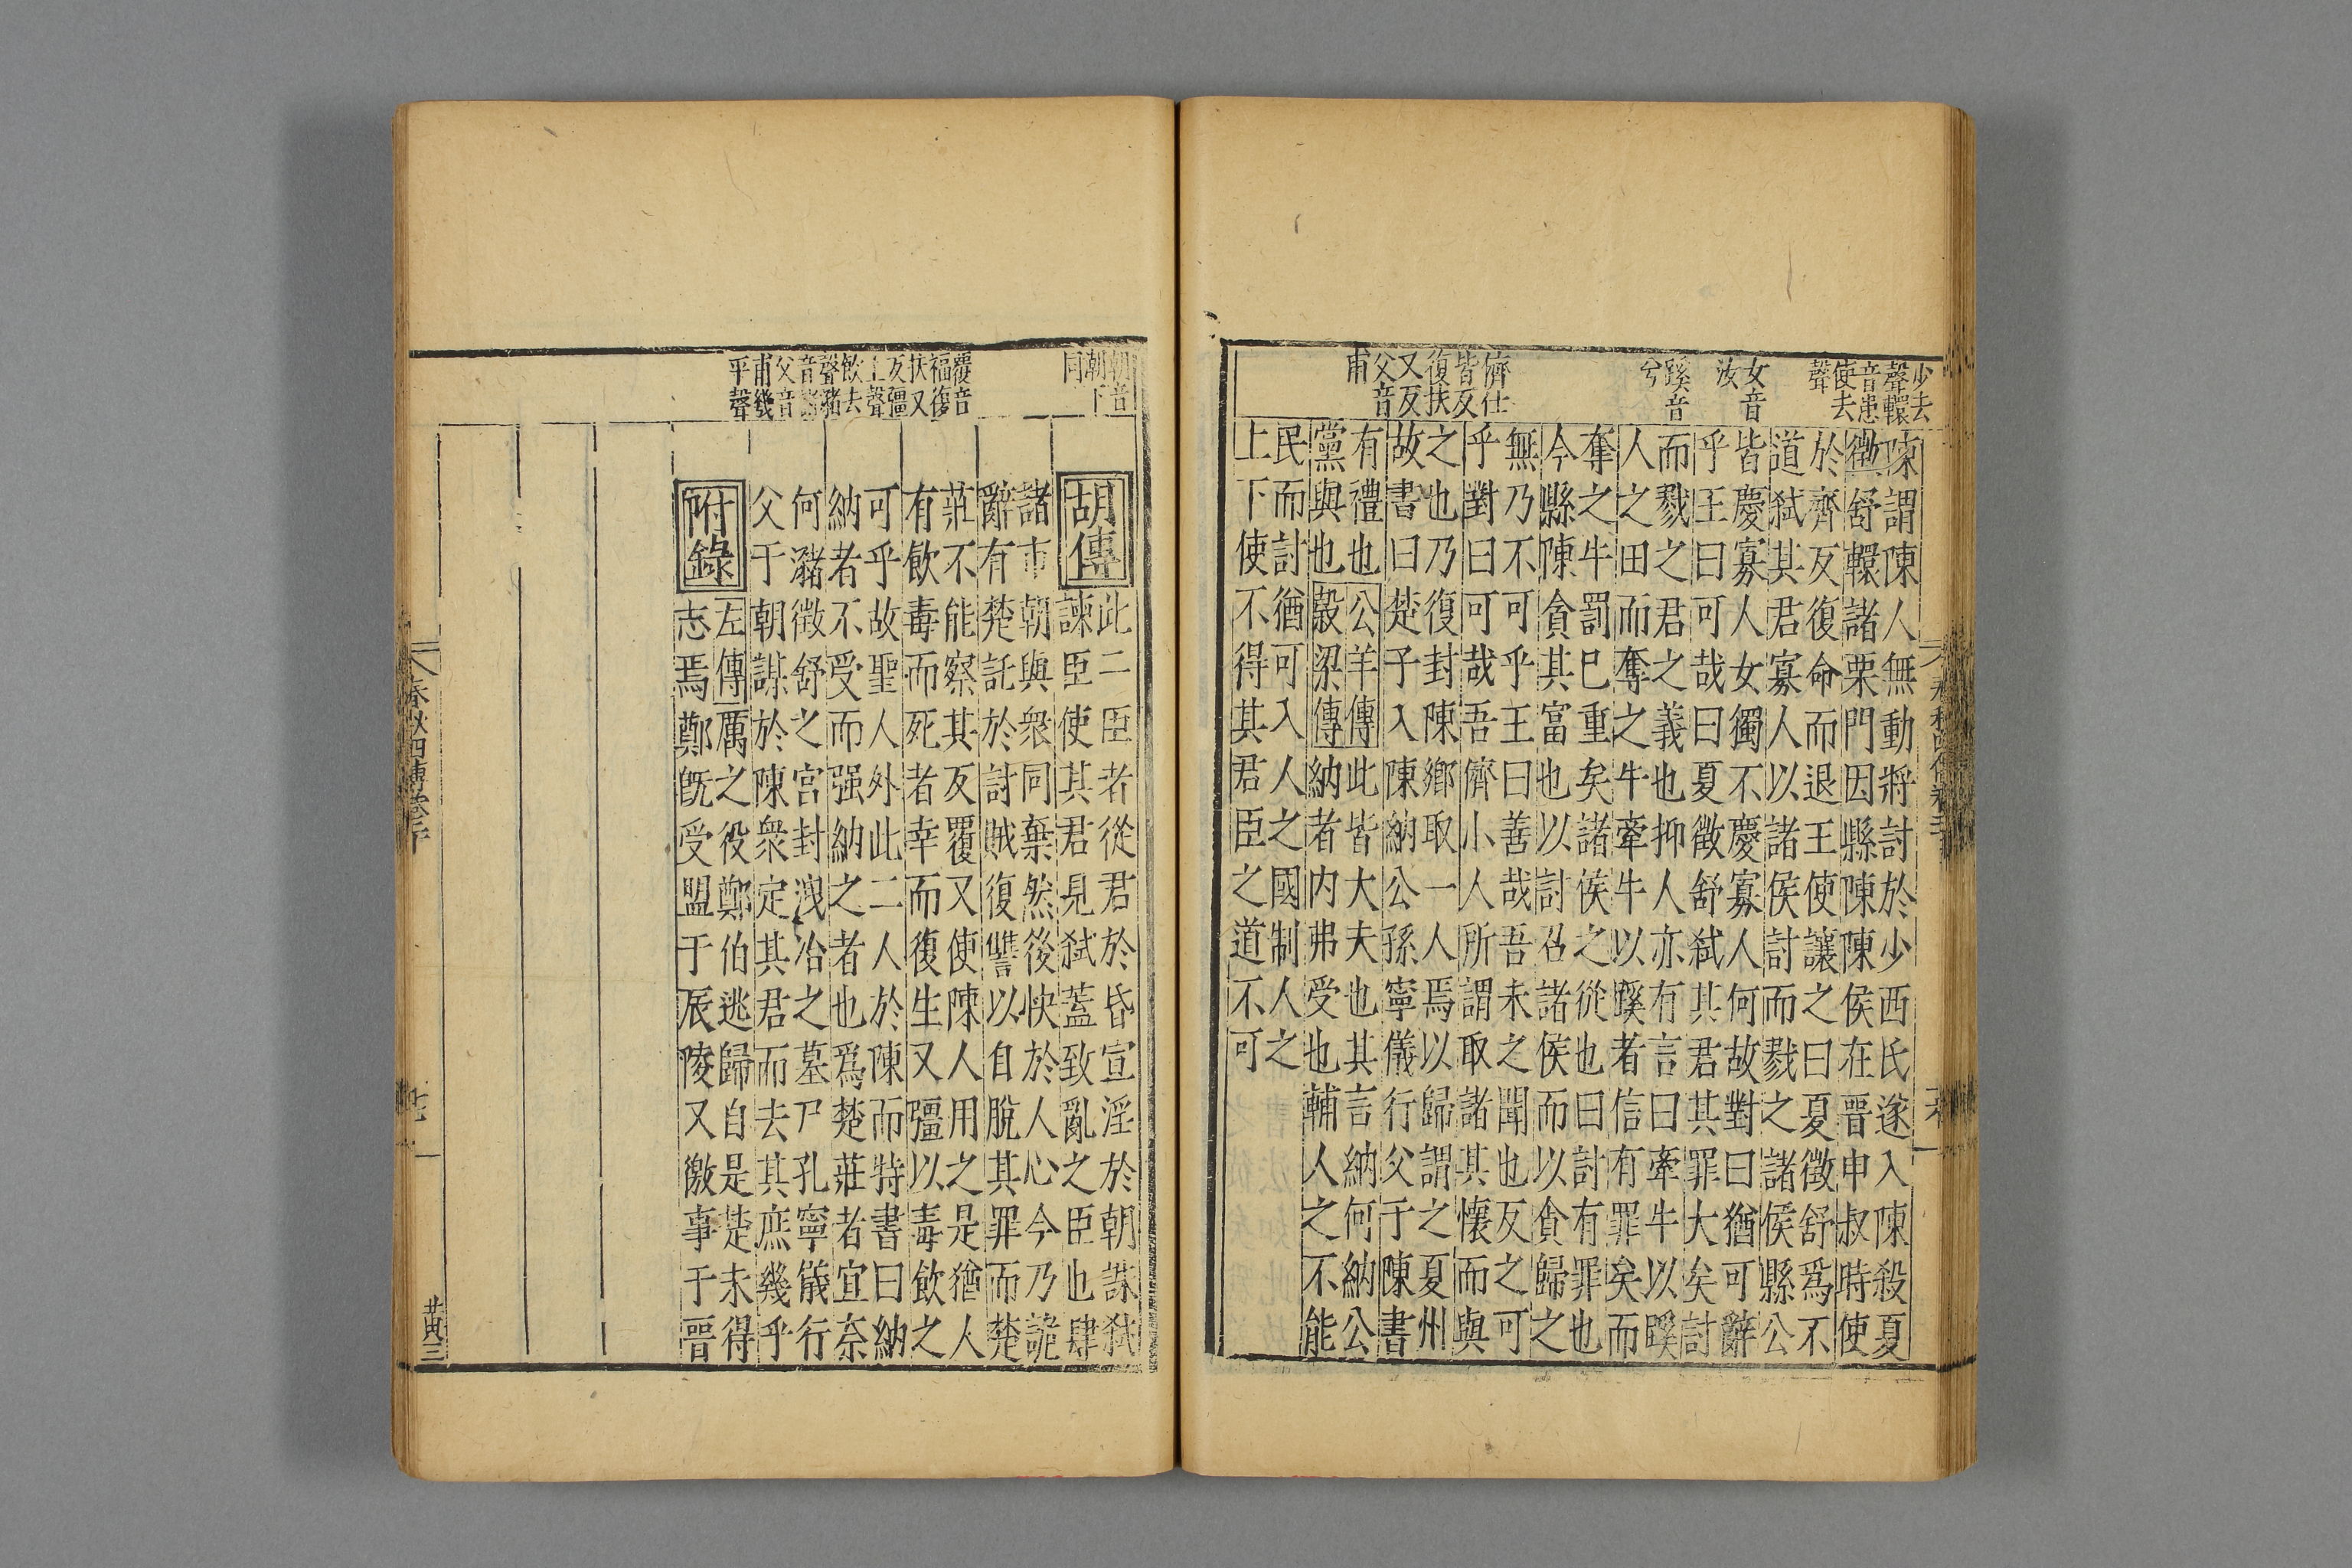 少去
聲轘
音患
使去
聲
女音
汝
蹊音
兮
儕仕
皆反
復扶
又反
父音
甫
陳謂陳人無動將討於少西氏遂入陳殺夏
徵舒轘諸栗門因縣陳陳侯在晉申叔時使
於齊反復命而退王使讓之曰夏徵舒爲不
道弑其君寡人以諸侯討而戮之諸侯縣公
皆慶寡人女獨不慶寡人何故對曰猶可辭
乎王曰可哉曰夏徵舒弑其君其罪大矣討
而戮之君之義也抑人亦有言曰牽牛以蹊
人之田而奪之牛牽牛以蹊者信有罪矣而
奪之牛罰已重矣諸侯之從也曰討有罪也
今縣陳貪其富也以討召諸侯而以貪歸之
無乃不可乎王曰善哉吾未之聞也反之可
乎對曰可哉吾儕小人所謂取諸其懷而與
之也乃復封陳鄉取一人焉以歸謂之夏州
故書曰楚子入陳納公孫寧儀行父于陳書
有禮也公羊傳此皆大夫也其言納何納公
黨與也穀梁傳納者內弗受也輔人之不能
民而討猶可入人之國制人之
上下使不得其君臣之道不可
朝音
朝下
同
覆音
福復
扶又
反彊
上聲
飲去
聲豬
音諸
父音
甫幾
平聲
胡傳
此二臣者從君於昏宣淫於朝誅弑
諫臣使其君見弑蓋致亂之臣也肆
諸市朝與衆同棄然後快於人心今乃詭
辭有楚託於討賊復讐以自脫其罪而楚
莊不能察其反覆又使陳人用之是猶人
有飲毒而死者幸而復生又彊以毒飲之
可乎故聖人外此二人於陳而特書曰納
納者不受而强納之者也爲楚莊者宜奈
何瀦徵舒之宮封洩冶之墓尸孔寧儀行
父于朝謀於陳衆定其君而去其庶幾乎
附錄
左傳厲之役鄭伯逃歸自是楚未得
志焉鄭旣受盟于辰陵又徼事于晉
春秋四傳卷